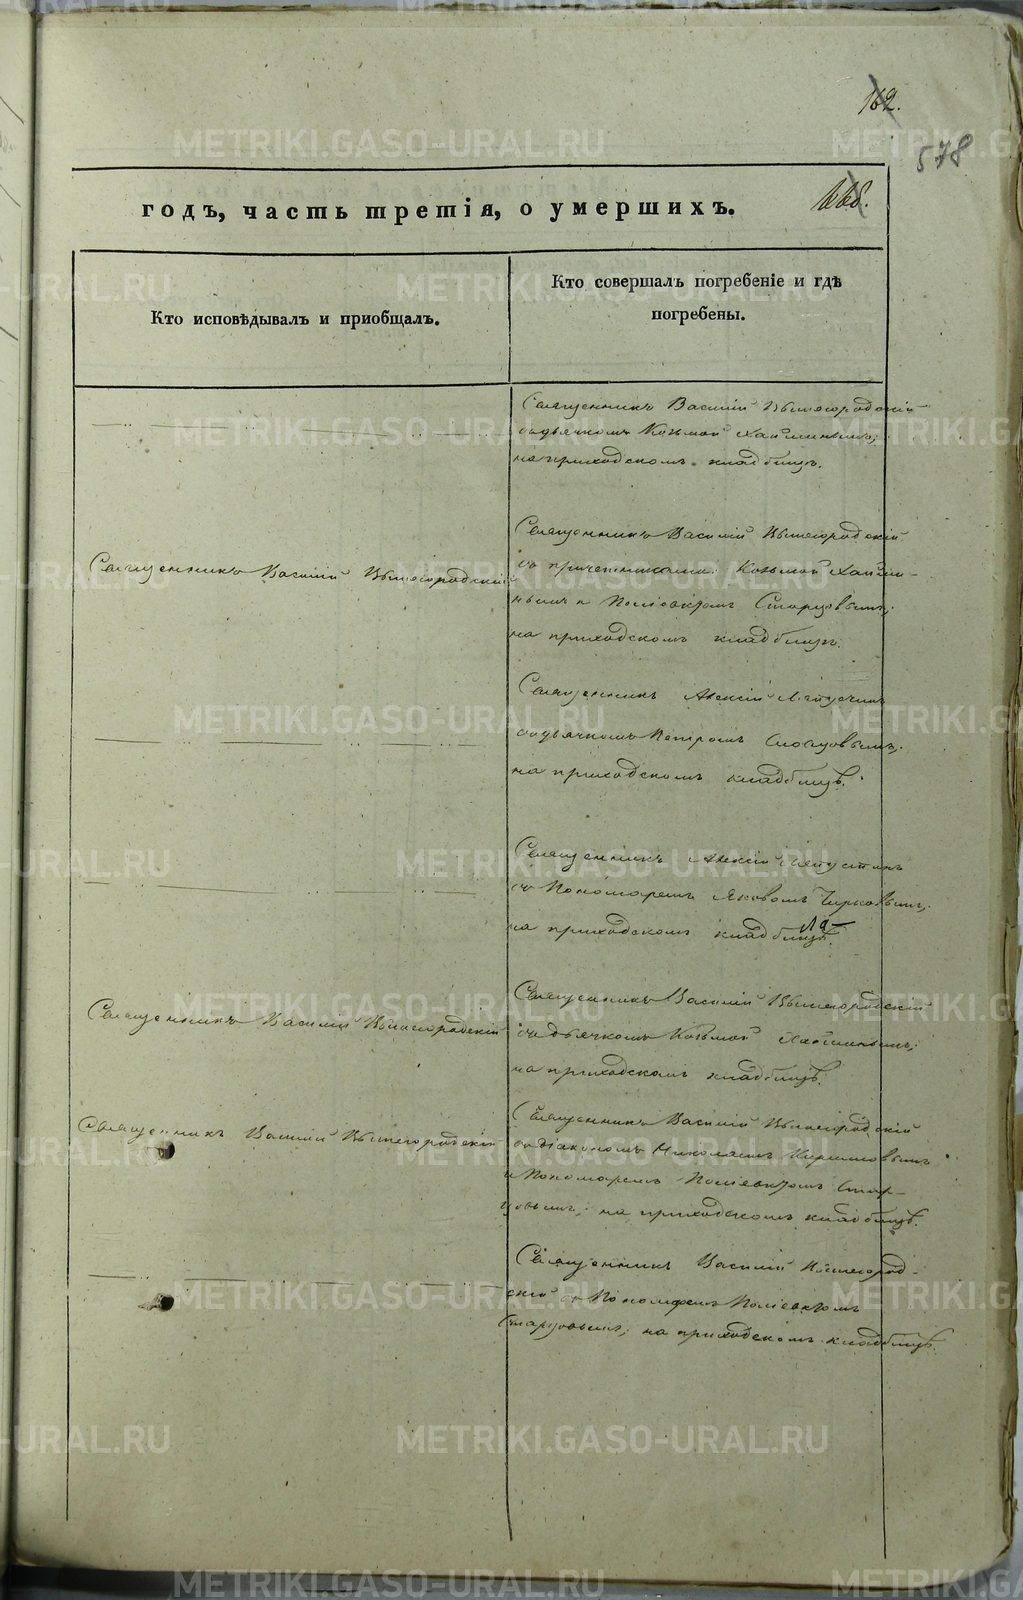 162.
578
168.
годъ, часть третія, о умершихъ.
Кто исповѣдывалъ и приобщалъ.
Кто совершалъ погребеніе и гдѣ
погребены.
Священникъ Василій Вышегородскій
съ дьячкомъ Козьмой
на приходскомъ кладбищѣ.
Священникъ Василій Вышегородскій
Священникъ Василій Вышегородскій
съ причетниками: Козьмой
и Поліевктомъ Старцовымъ;
на приходскомъ кладбищѣ.
Священникъ Алексій
съ дьячкомъ Петромъ
на приходскомъ кладбищѣ.
Священникъ Алексій
съ Пономаремъ Яковомъ
на приходскомъ кладбищѣ.
Священникъ Василій Вышегородскій
Священникъ Василій Вышегородскій
съ дьячкомъ Козьмой
на приходскомъ кладбищѣ.
Священникъ Василій Вышегородскій
Священникъ Василій Вышегородскій
съ діакономъ Николаемъ
и Пономаремъ Поліевктомъ Стар-
цовымъ; на приходскомъ кладбищѣ.
Священникъ Василій Вышегород-
скій съ Пономаремъ Поліевктомъ
Старцовымъ; на приходскомъ кладбищѣ.
METRIKI.GASO-URAL.RU